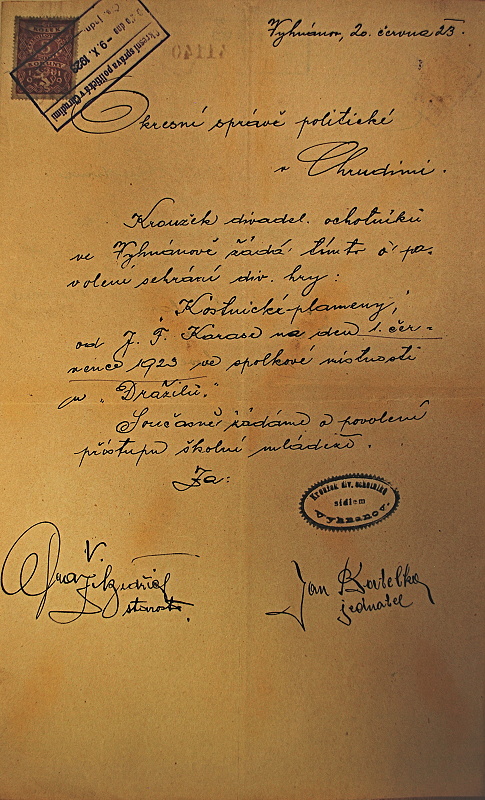 Vyhnánov, 20. června 23.
Okresní správa politická v Chrudimi
– 9. X. 192
Okresní správě politické
v Chrudimi.
Kroužek divadel. ochotníků
ve Vyhnánově žádá tímto o po-
volení sehrání div. hry:
"Kostnické plameny",
od J. F. Karase na den 1. čer-
vence 1923 ve spolkové místnosti
u "Dražilů."
Současně žádáme o povolení
přístupu školní mládeže.
Za:
Kroužek div. ochotníků
sídlem
Vyhnanov.
V.
starosta.
Jan
jednatel